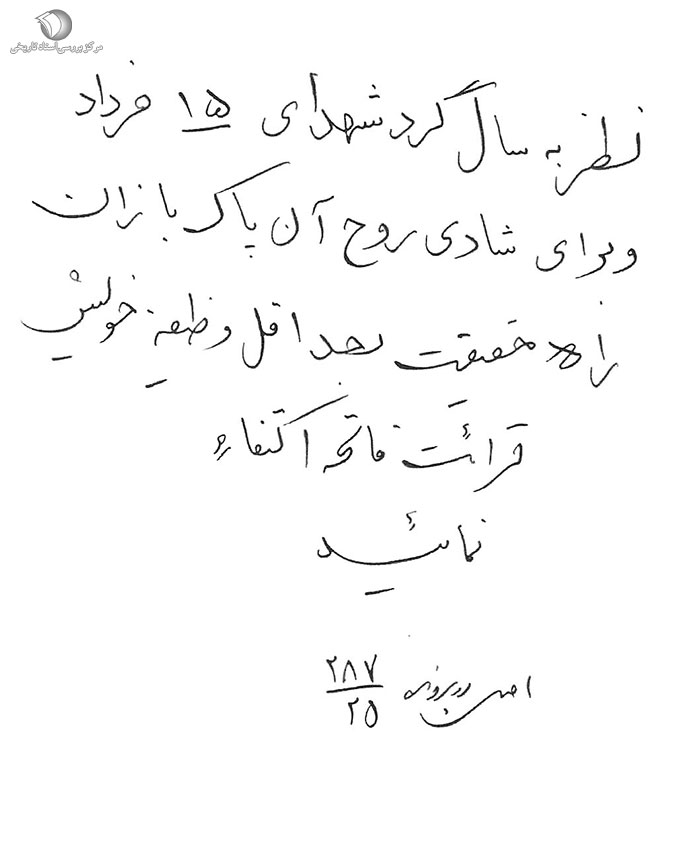 مرکز بررسی اسناد تاریخی
نظر به سال گرد شهدای ۱۵ خرداد
وبرای شادی روح آن پاک بازان
راه حقیقت بحداقل وظیفه خویش
قرائت فاتحه اکتفاء
نمائید
اصل در پرونده ۲۸۷
۲۵